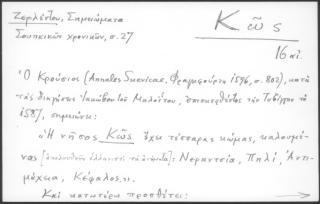 Ζερλέντου, Σημειώματα
Σουηκικῶν χρονικῶν, σ. 27
Κῶς
16 αἰ.
Ὁ Κρούσιος (Annales Suevicae, Φραγκφούρτη 1596, σ. 802), κατὰ
τὰς διηγήσεις Ἰακώβου τοῦ Μηλοΐτου, ἐπισκεφθέντος τὴν Τυβίγγην τὸ
1587, σημειώνει:
«Ἡ νῆσος Κῶς ἔχει τέσσαρας κώμας, καλουμέ-
νας [ἀκολουθοῦν ἑλληνιστὶ τὰ ὀνόματα]: Νεραντεία, Πηλί, Ἀντι-
μάχεια, Κέφαλος.»
Καὶ κατωτέρω προσθέτει: